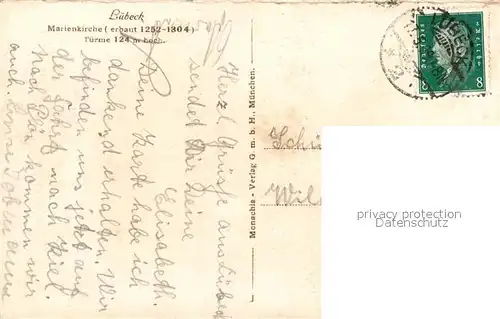 Lübeck
Marienkirche (erbaut 1252-1304)
Türme 124 m hoch.
Herzl. Grüße aus Lübeck
sendet Dir Deine
Elisabeth.
Deine Karte habe ich
dankend erhalten. Wir
befinden uns jetzt auf
der Fahrt nach Kiel.
nach Plön kommen wir
auch
Monachia - Verlag G. m. b. H., München.
LÜBECK
Deutsches Reich
8 8
Schü
Wil
privacy protection
Datenschutz